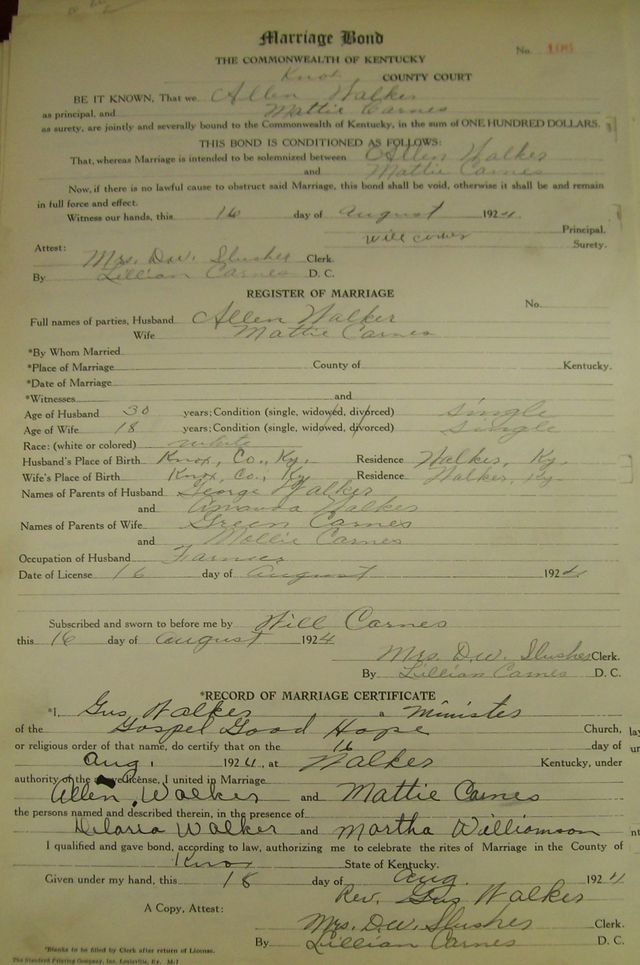 Marriage Bond
No.
THE COMMONWEALTH OF KENTUCKY
Knox COUNTY COURT
BE IT KNOWN, That we Allen Walker
as principal, and Mattie Carnes
as surety, are jointly and severally bound to the Commonwealth of Kentucky, in the sum of ONE HUNDRED DOLLARS.
THIS BOND IS CONDITIONED AS FOLLOWS:
That, whereas Marriage is intended to be solemnized between Allen Walker
and Mattie Carnes
Now, if there is no lawful cause to obstruct said Marriage, this bond shall be void, otherwise it shall be and remain
in full force and effect.
Witness our hands, this 16 day of august 1924.
Principal.
Will Carnes Surety.
Attest:
Mrs. D.W. Slusher Clerk.
By Lillian Carnes D. C.
REGISTER OF MARRIAGE
No.
Full names of parties, Husband Allen Walker
Wife Mattie Carnes
*By Whom Married
*Place of Marriage County of Kentucky.
*Date of Marriage
*Witnesses and
Age of Husband 30 years; Condition (single, widowed, divorced) single
Age of Wife 18 years; Condition (single, widowed, divorced) single
Race: (white or colored) white
Husband's Place of Birth Knox, Co., Ky. Residence Walker, Ky.
Wife's Place of Birth Knox, Co., Ky Residence Walker, Ky.
Names of Parents of Husband George Walker
and Amanda Walker
Names of Parents of Wife Green Carnes
and Mollie Carnes
Occupation of Husband Farmer
Date of License 16 day of august 1924
Subscribed and sworn to before me by Will Carnes
this 16 day of august 1924
Mrs. D.W. Slusher Clerk.
By Lillian Carnes D. C.
*RECORD OF MARRIAGE CERTIFICATE
*I, Gus Walker a Minister
of the Gospel Good Hope Church,
or religious order of that name, do certify that on the 16 day of
Aug. 1924, at Walker Kentucky, under
authority of the above license, I united in Marriage
Allen Walker and Mattie Carnes
the persons named and described therein, in the presence of
Walker and Martha Williamson
I qualified and gave bond, according to law, authorizing me to celebrate the rites of Marriage in the County of
Knox State of Kentucky.
Given under my hand, this 18 day of Aug. 1924
Rev. Gus Walker
A Copy, Attest:
Mrs. D.W. Slusher Clerk.
By Lillian Carnes D. C.
*Blanks to be filled by Clerk after return of License.
The Standard Printing Company, Inc. Louisville, Ky. M-1